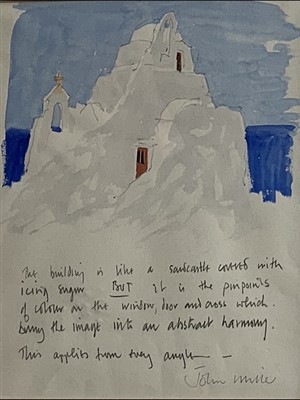 The building is like a sandcastle covered with
icing sugar BUT it is the pinpoints
of colour on the window, door and cross which
bring the image into an abstract harmony.
This applies from every angle —
John Miller